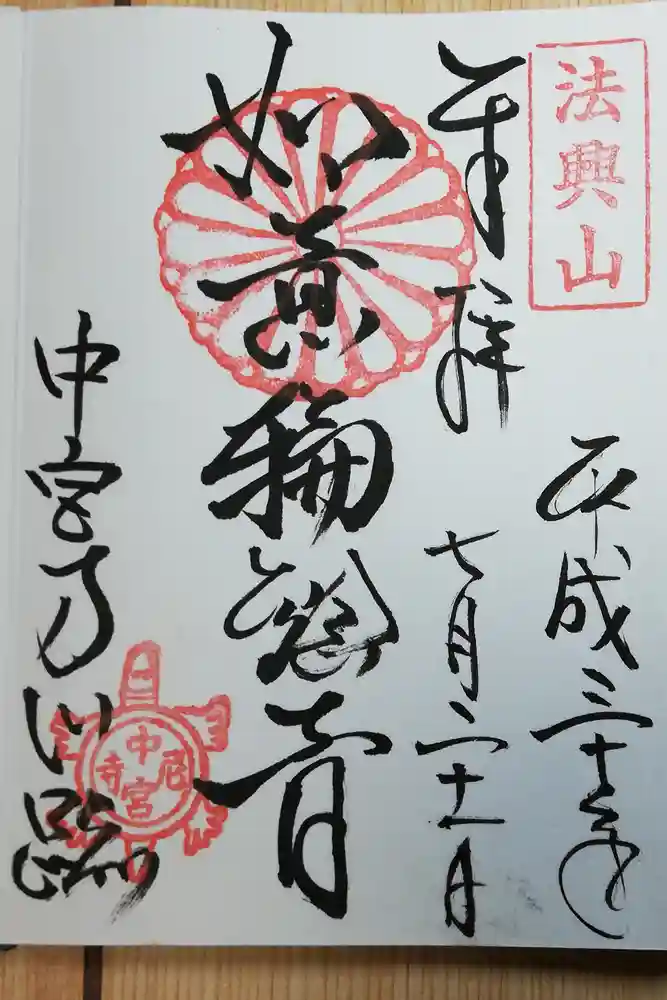 法興山
平成三十年
奉拝
七月二十一日
如意輪観音
中宮寺門跡
中宮尼寺